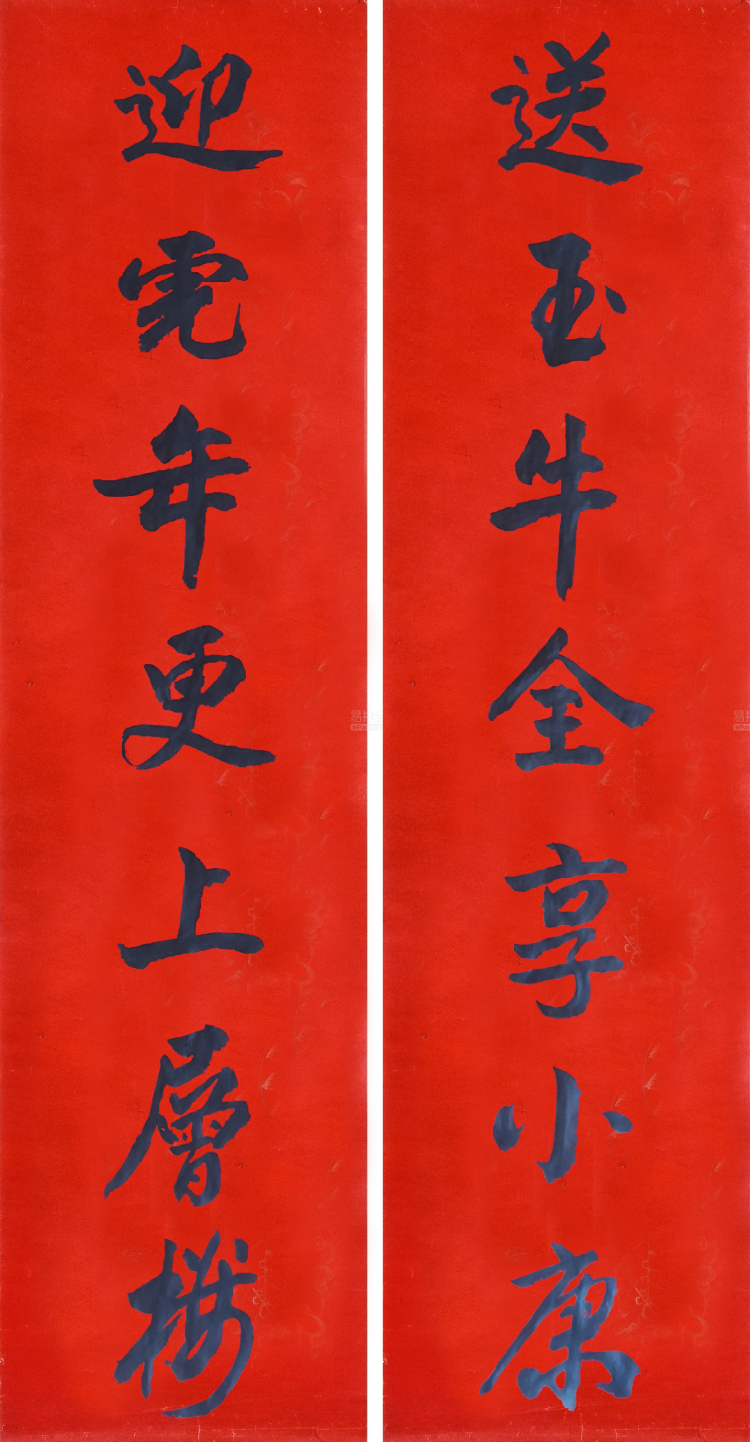 送玉牛全享小康
迎虎年更上层楼